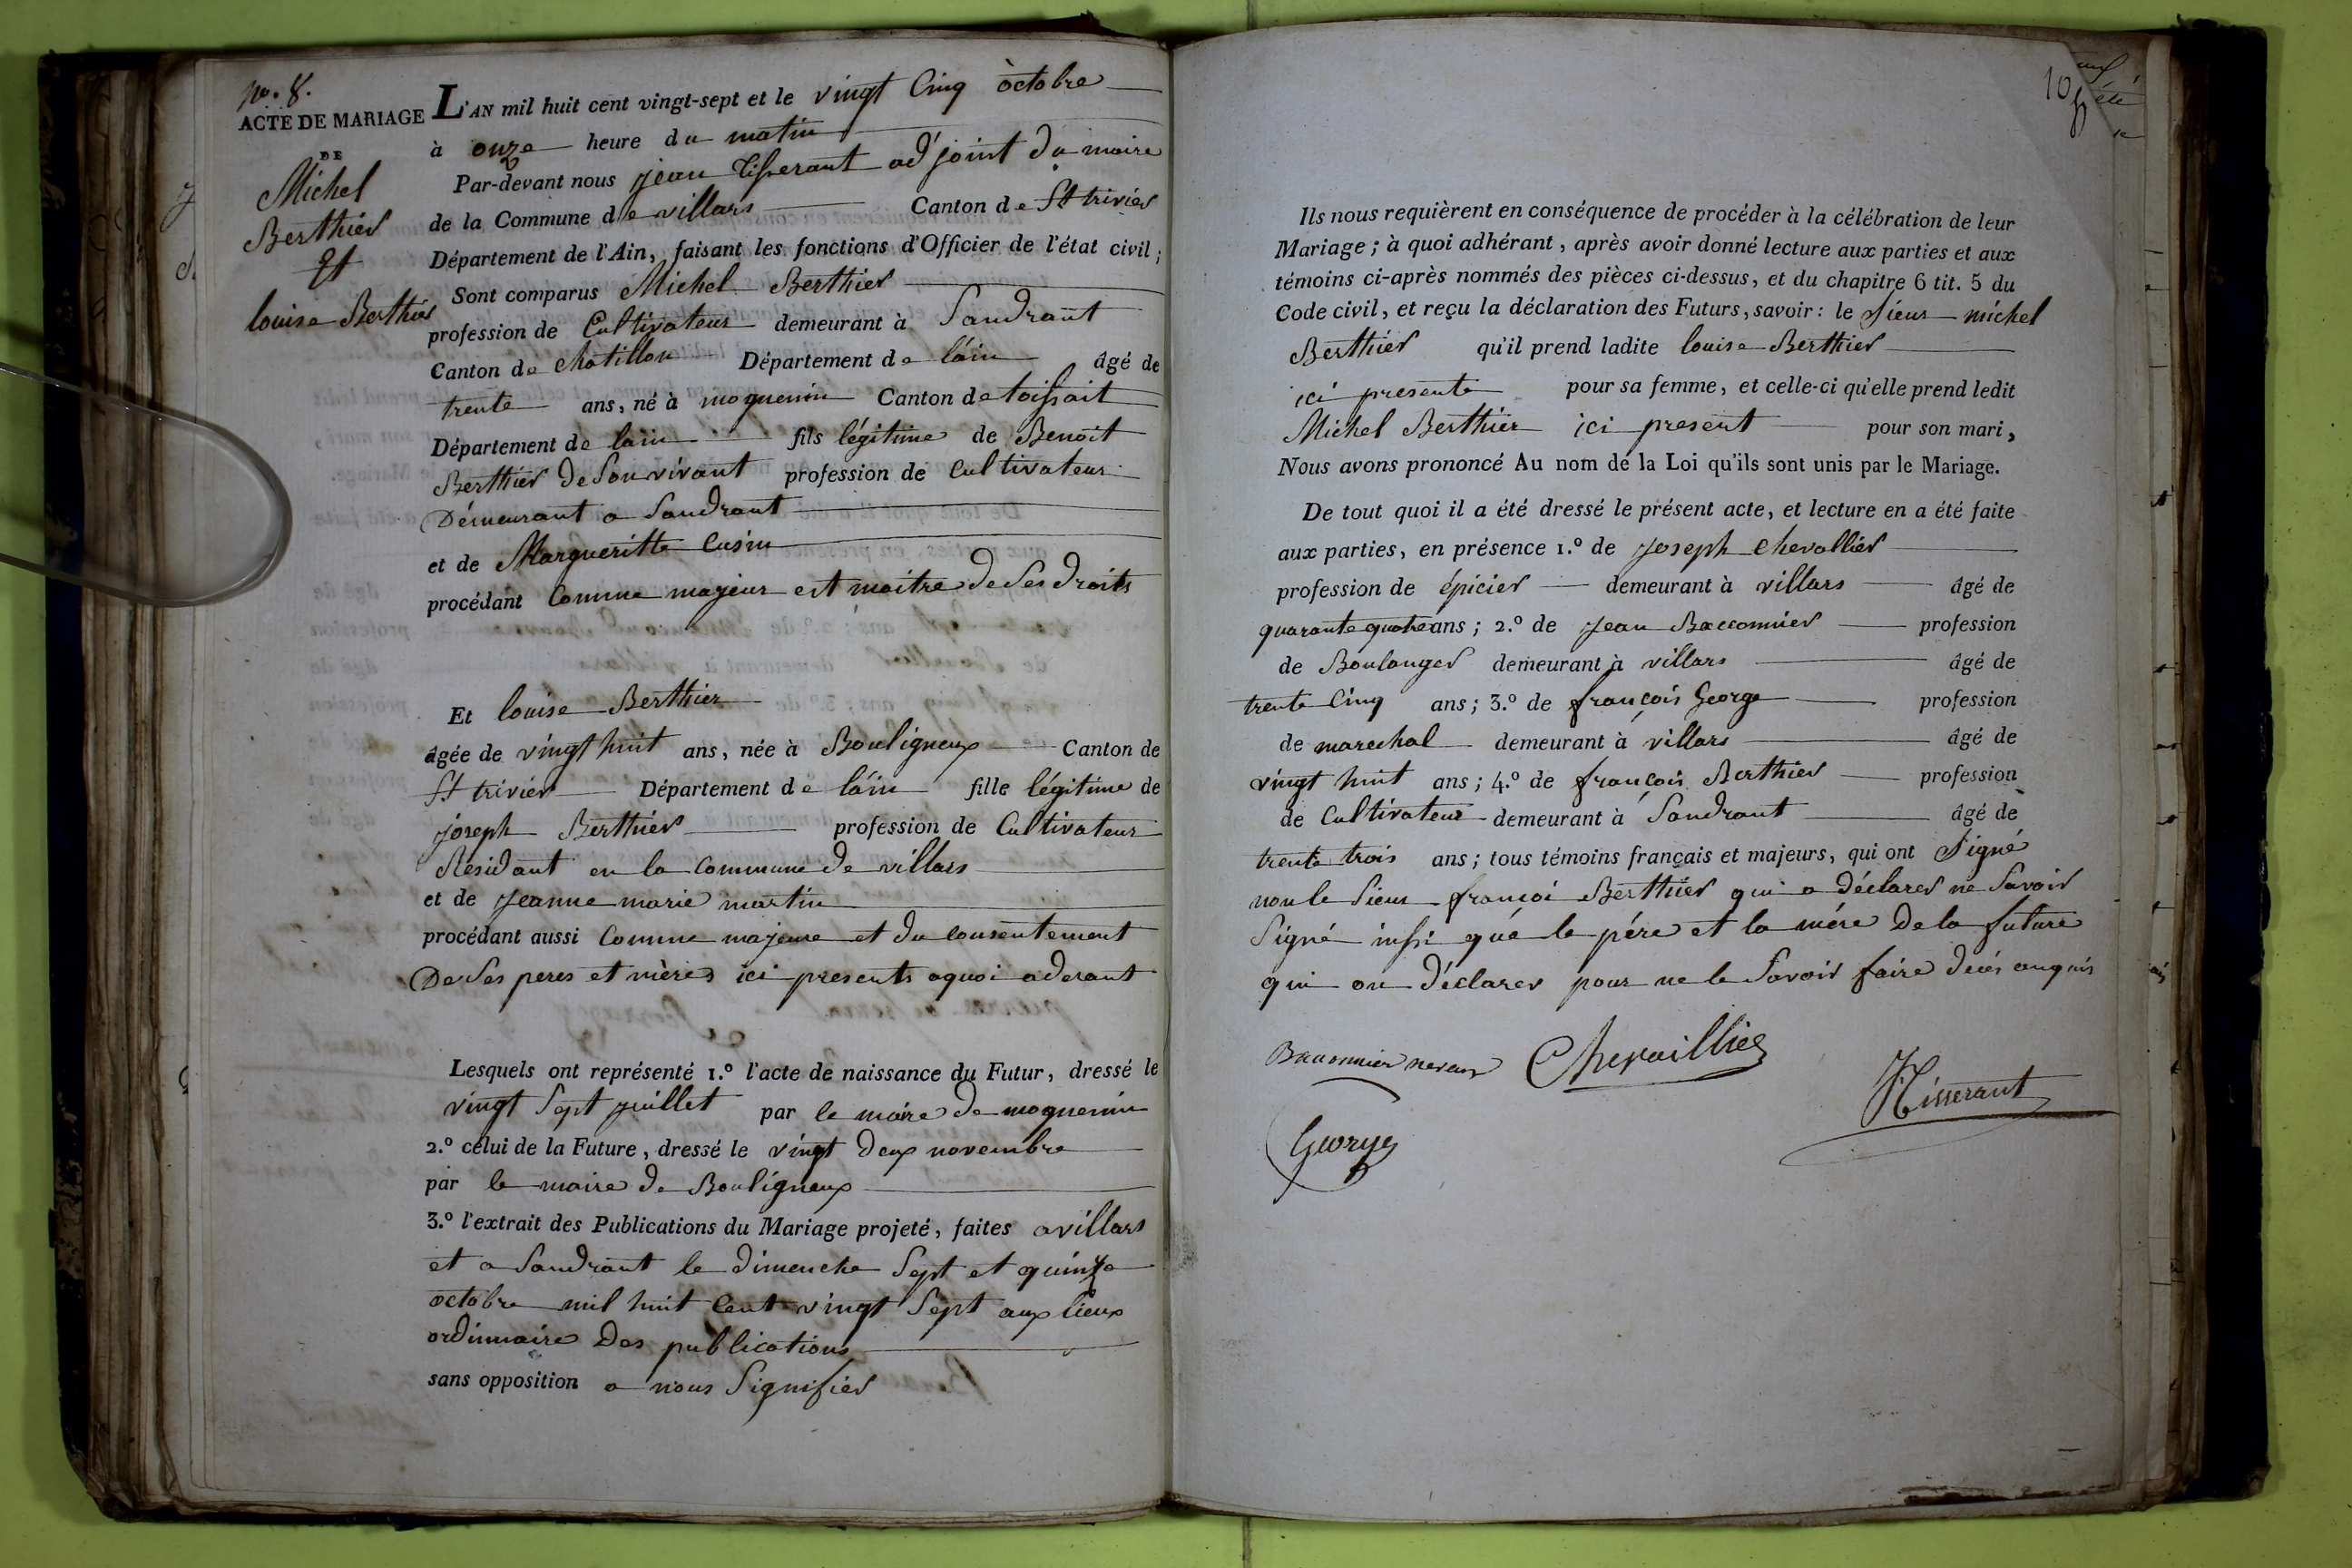 No. 8.
ACTE DE MARIAGE
DE
Michel
Berthier
Et
louise Berthier
L'AN mil huit cent vingt-sept et le vingt Cinq octobre
à onze heure du matin
Par-devant nous jean tisserant ad'joint du maire
de la Commune de villars Canton de St trivier
Département de l'Ain, faisant les fonctions d'Officier de l'état civil;
Sont comparus Michel Berthier
profession de Cultivateur demeurant à Sandrant
Canton de chatillon Département de láin âgé de
trente ans, né à mognenin Canton de toissait
Département de lain fils légitime de Benoit
Berthier de Son vivant profession de Cultivateur
Démeurant a Sandrant
et de Margueritte Cusin
procédant Comme majeur est maitre de Ses droits
Et louise Berthier
âgée de vingt huit ans, née à Bouligneux Canton de
St trivier Département de láin fille légitime de
joseph Berthier profession de Cultivateur
Résidant en la Commune de villars
et de Jeanne marie martin
procédant aussi Comme majeure et du consentement
De Ses peres et mères ici presents aquoi aderant
Lesquels ont représenté 1.º l'acte de naissance du Futur, dressé le
vingt Sept juillet par le maire de mognenin
2.º celui de la Future, dressé le vingt deux novembre
par le maire de Bouligneux
3.º l'extrait des Publications du Mariage projeté, faites a villars
et a Sandrant le dimenche Sept et quinze
octobre mil huit Cent vingt Sept aux lieux
ordinnaire Des publications
sans opposition a nous Signifier
10
Ils nous requièrent en conséquence de procéder à la célébration de leur
Mariage; à quoi adhérant, après avoir donné lecture aux parties et aux
témoins ci-après nommés des pièces ci-dessus, et du chapitre 6 tit. 5 du
Code civil, et reçu la déclaration des Futurs, savoir: le Sieur michel
Berthier qu'il prend ladite louise Berthier
ici presente pour sa femme, et celle-ci qu'elle prend ledit
Michel Berthier ici present pour son mari,
Nous avons prononcé Au nom de la Loi qu'ils sont unis par le Mariage.
De tout quoi il a été dressé le présent acte, et lecture en a été faite
aux parties, en présence 1.º de Joseph chevallier
profession de épicier demeurant à villars âgé de
quarante quatre ans; 2.º de Jean Bacconnier profession
de Boulanger demeurant à villars âgé de
trente Cinq ans; 3.º de françois George profession
de marechal demeurant à villars âgé de
vingt huit ans; 4.º de françois Berthier profession
de Cultivateur demeurant à Sandrant âgé de
trente trois ans; tous témoins français et majeurs, qui ont Signé
non le Sieur françoi Berthier qui a déclarer ne Savoir
Signé inssi qué le pére et la mére De la future
qui on déclarer pour ne le Savoir faire decés enquis
Bacconnier neveux Chevaillier
JTisserant
George